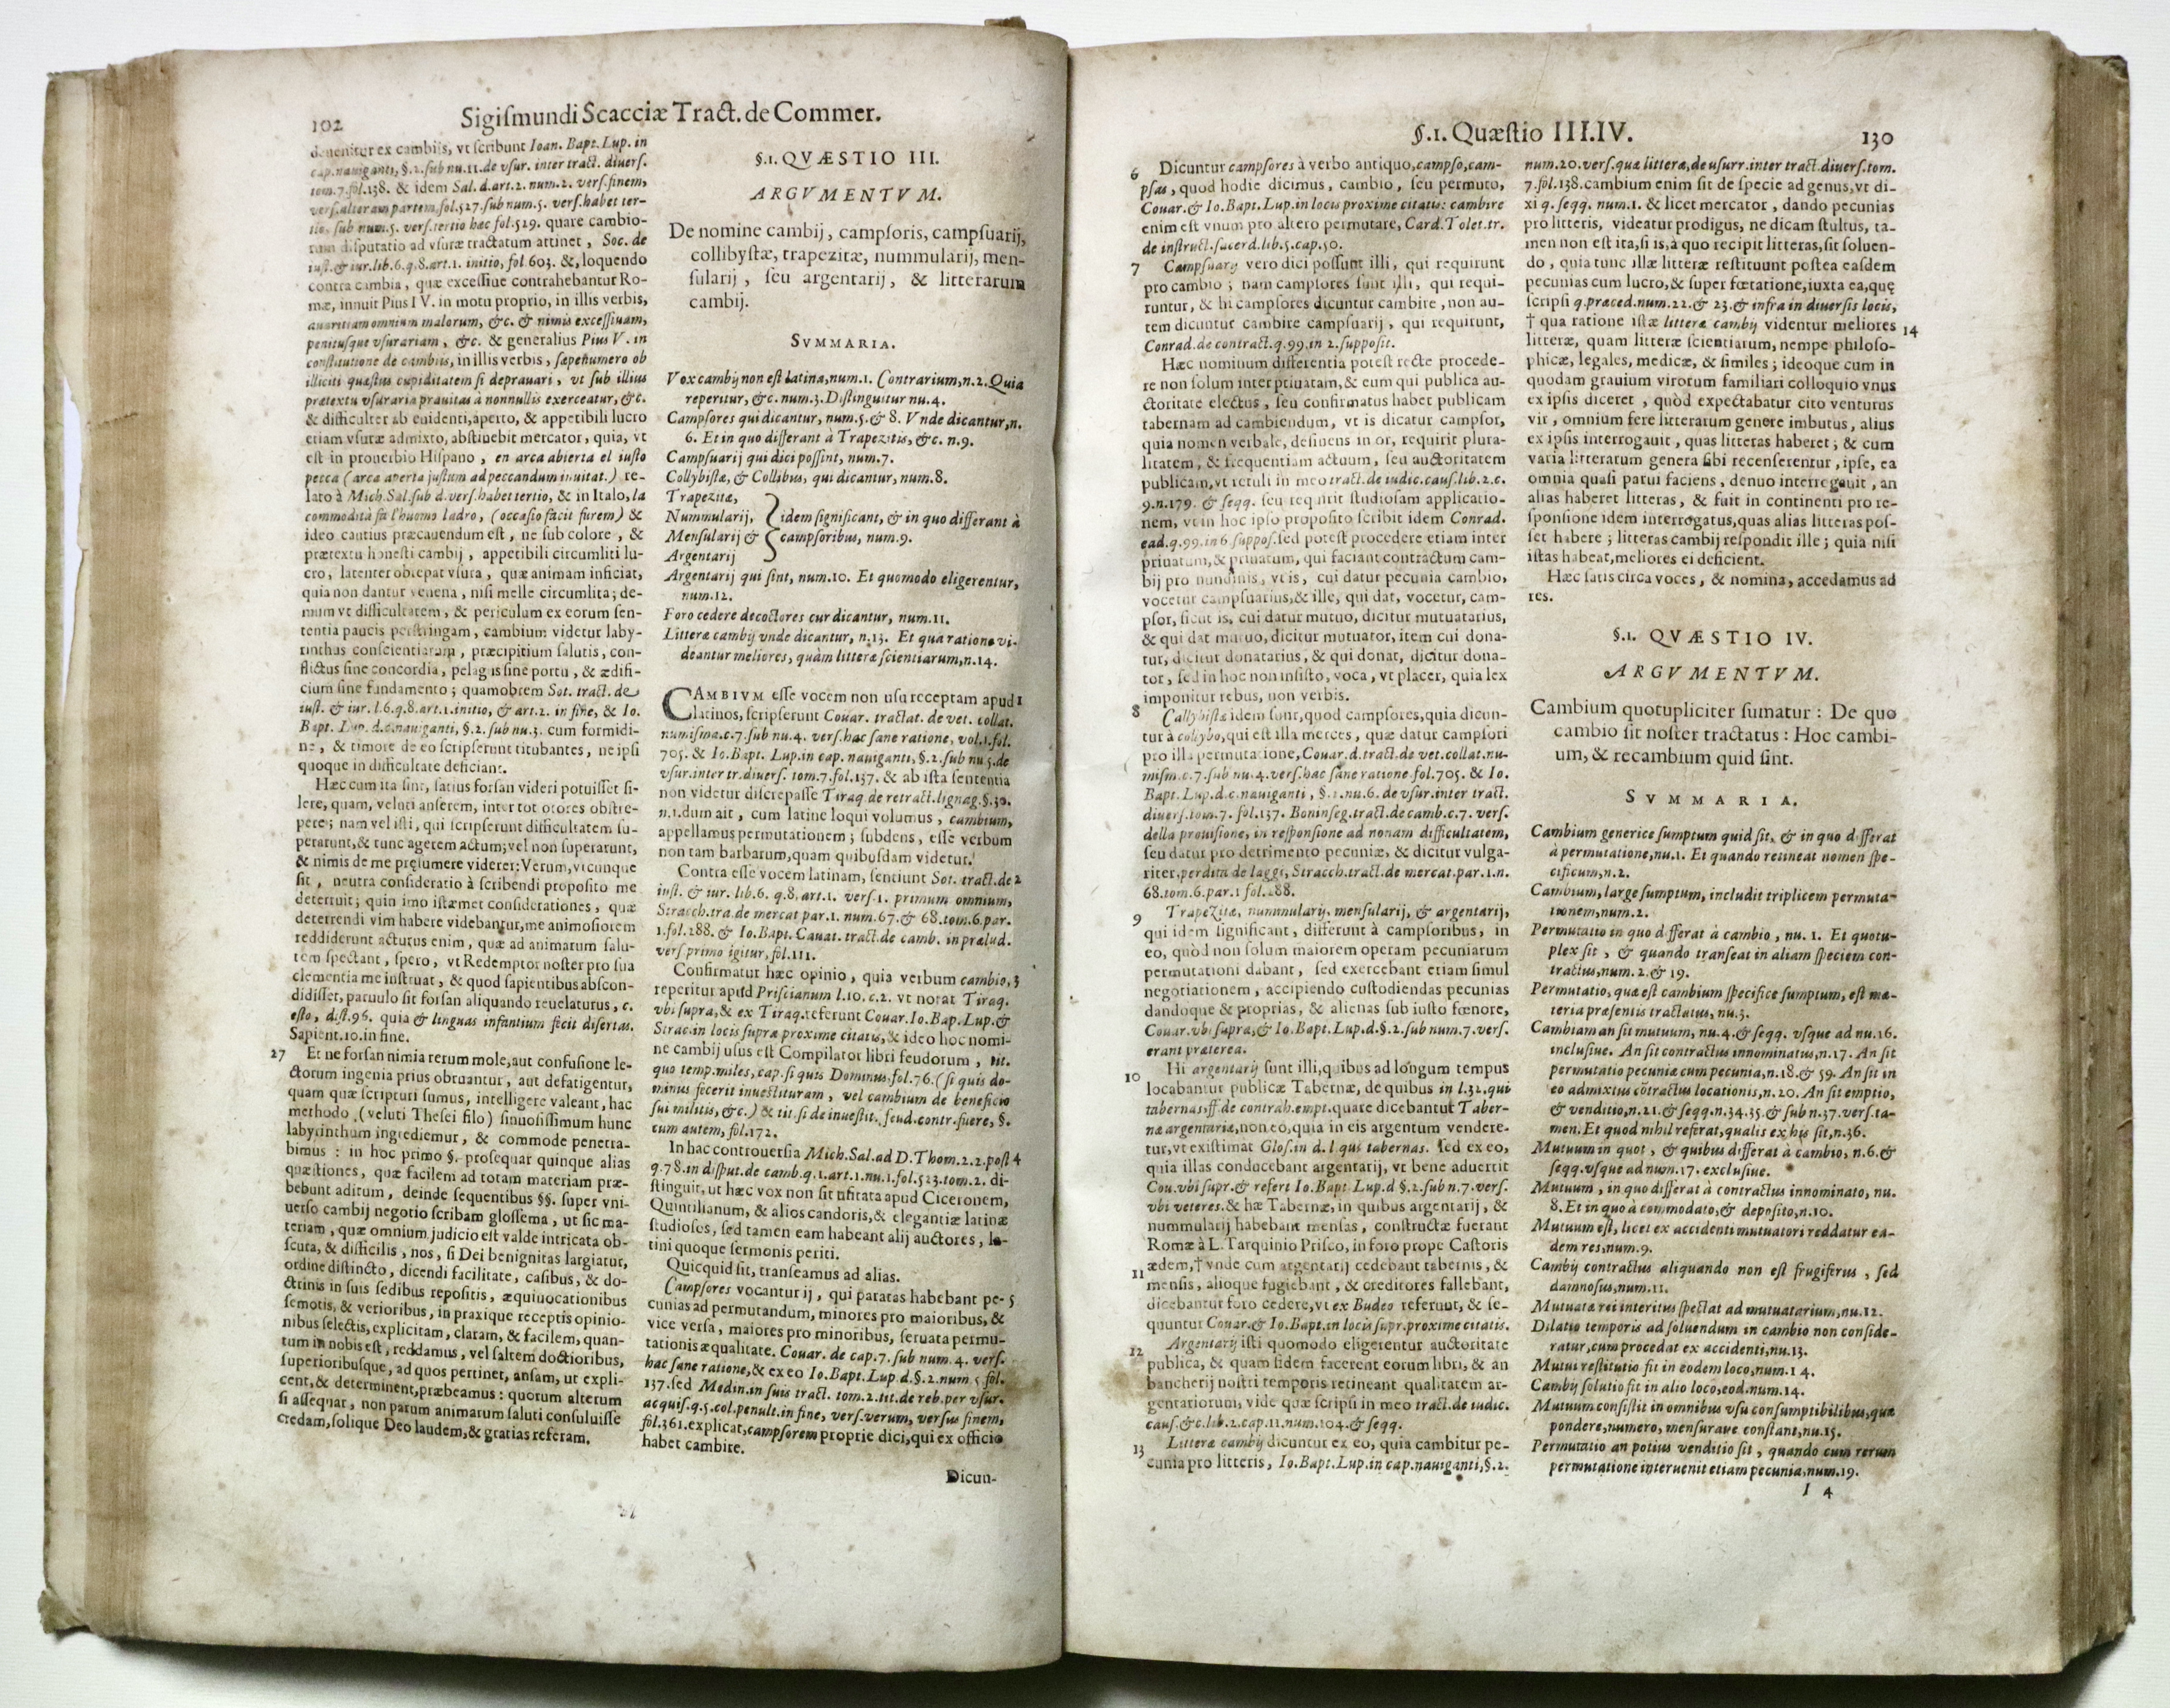 102
Sigiſmundi Scacciæ Tract. de Commer.
deuenitur ex cambijs, vt ſcribunt Ioan. Bapt. Lup. in
cap. nauiganti, §.2. ſub nu.11. de vſur. inter tract. diuerſ.
tom.7. fol.138. & idem Sal. d. art.2. num.2. verſ. finem,
verſ. alteram partem, fol.527. ſub num.5. verſ. habet ter-
tio, ſub num.5. verſ. tertio hæc fol.529. quare cambio-
rum diſputatio ad vſuræ tractatum attinet, Soc. de
iuſt. & iur. lib.6. q.8. art.1. initio, fol 603. &, loquendo
contra cambia, quæ exceſſiue contrahebantur Ro-
mæ, innuit Pius IV. in motu proprio, in illis verbis,
auaritiam omnium malorum, &c. & nimis exceſſiuam,
penituſque vſurariam, &c. & generalius Pius V. in
conſtitutione de cambiis, in illis verbis, ſæpenumero ob
illiciti quæſtus cupiditatem ſi deprauari, vt ſub illius
prætextu vſuraria prauitas à nonnullis exerceatur, &c.
& difficulter ab euidenti, aperto, & appetibili lucro
etiam vſuræ admixto, abſtinebit mercator, quia, vt
eſt in prouerbio Hiſpano, en arca abierta el iuſto
pecca (arca aperta juſtum ad peccandum inuitat.) re-
lato à Mich. Sal. ſub d. verſ. habet tertio, & in Italo, la
commodità fa l'huomo ladro, (occaſio facit furem) &
ideo cautius præcauendum eſt, ne ſub colore, &
prætextu honeſti cambij, appetibili circumliti lu-
cro, latenter obrepat vſura, quæ animam inficiat,
quia non dantur venena, niſi melle circumlita; de-
mum vt difficultatem, & periculum ex eorum ſen-
tentia paucis perſtringam, cambium videtur laby-
rinthus conſcientiarum, præcipitium ſalutis, con-
flictus ſine concordia, pelagus ſine portu, & ædifi-
cium ſine fundamento; quamobrem Sot. tract. de
iuſt. & iur. l.6. q.8. art.1. initio, & art.2. in fine, & Io.
Bapt. Lup. d. c. nauiganti, §.2. ſub nu.3. cum formidi-
ne, & timore de eo ſcripſerunt titubantes, ne ipſi
quoque in difficultate deficiant.
Hæc cum ita ſint, ſatius forſan videri potuiſſet ſi-
lere, quam, veluti anſerem, inter tot olores obſtre-
pere; nam vel iſti, qui ſcripſerunt difficultatem ſu-
perarunt, & tunc agerem actum; vel non ſuperarunt,
& nimis de me pręſumere viderer: Verum, vtcunque
ſit, neutra conſideratio à ſcribendi propoſito me
deterruit; quin imo iſtæmet conſiderationes, quæ
deterrendi vim habere videbantur, me animoſiorem
reddiderunt acturus enim, quæ ad animarum ſalu-
tem ſpectant, ſpero, vt Redemptor noſter pro ſua
clementia me inſtruat, & quod ſapientibus abſcon-
didiſſet, paruulo ſit forſan aliquando reuelaturus, c.
eſto, diſt.96. quia & linguas infantium fecit diſertas.
Sapient.10. in fine.
27 Et ne forſan nimia rerum mole, aut confuſione le-
ctorum ingenia prius obruantur, aut defatigentur,
quam quæ ſcripturi ſumus, intelligere valeant, hac
methodo, (veluti Theſei filo) ſinuoſiſſimum hunc
labyrinthum ingrediemur, & commode penetra-
bimus: in hoc primo §. proſequar quinque alias
quæſtiones, quæ facilem ad totam materiam præ-
bebunt aditum, deinde ſequentibus §§. ſuper vni-
uerſo cambij negotio ſcribam gloſſema, ut ſic ma-
teriam, quæ omnium judicio eſt valde intricata ob-
ſcuta, & difficilis, nos, ſi Dei benignitas largiatur,
ordine diſtincto, dicendi facilitate, caſibus, & do-
ctrinis in ſuis ſedibus repoſitis, æquiuocationibus
ſemotis, & verioribus, in praxique receptis opinio-
nibus ſelectis, explicitam, claram, & facilem, quan-
tum in nobis eſt, reddamus, vel ſaltem doctioribus,
ſuperioribuſque, ad quos pertinet, anſam, ut expli-
cent, & determinent, præbeamus: quorum alterum
ſi aſſequar, non parum animarum ſaluti conſuluiſſe
credam, ſolique Deo laudem, & gratias referam.
§.1. QVÆSTIO III.
ARGVMENTVM.
De nomine cambij, campſoris, campſuarij,
collibyſtæ, trapezitæ, nummularij, men-
ſularij, ſeu argentarij, & litterarum
cambij.
SVMMARIA.
Vox cambij non eſt latina, num.1. Contrarium, n.2. Quia
reperitur, &c. num.3. Diſtinguitur nu.4.
Campſores qui dicantur, num.5. & 8. Vnde dicantur, n.
6. Et in quo differant à Trapezitis, &c. n.9.
Campſuarij qui dici poſſint, num.7.
Collybiſtæ, & Collibus, qui dicantur, num.8.
Trapezitæ,
Nummularij, } idem ſignificant, & in quo differant à
Menſularij & } campſoribus, num.9.
Argentarij
Argentarij qui ſint, num.10. Et quomodo eligerentur,
num.12.
Foro cedere decoctores cur dicantur, num.11.
Litteræ cambij vnde dicantur, n.13. Et qua ratione vi-
deantur meliores, quàm litteræ ſcientiarum, n.14.
CAMBIVM eſſe vocem non uſu receptam apud 1
latinos, ſcripſerunt Couar. tractat. de vet. collat.
numiſma. c.7. ſub nu.4. verſ. hac ſane ratione, vol.1. fol.
705. & Io. Bapt. Lup. in cap. nauiganti, §.2. ſub nu.5. de
vſur. inter tr. diuerſ. tom.7. fol.137. & ab iſta ſententia
non videtur diſcrepaſſe Tiraq. de retract. lignag. §.30.
n.1. dum ait, cum latine loqui volumus, cambium,
appellamus permutationem; ſubdens, eſſe verbum
non tam barbarum, quam quibuſdam videtur.
Contra eſſe vocem latinam, ſentiunt Sot. tract. de 2
iuſt. & iur. lib.6. q.8. art.1. verſ.1. primum omnium,
Stracch. tra. de mercat par.1. num.67. & 68. tom.6. par.
1. fol.288. & Io. Bapt. Cauat. tract. de camb. in prælud.
verſ primo igitur, fol.111.
Confirmatur hæc opinio, quia verbum cambio, 3
reperitur apud Priſcianum l.10. c.2. vt notat Tiraq.
vbi ſupra, & ex Tiraq. referunt Couar. Io. Bap. Lup. &
Strac. in locis ſupra proxime citatis, & ideo hoc nomi-
ne cambij uſus eſt Compilator libri feudorum, tit.
quo temp. miles, cap. ſi quis Dominus, fol.76. (ſi quis do-
minus fecerit inueſtituram, vel cambium de beneficio
ſui militis, &c.) & tit. ſi de inueſtit. feud. contr. fuere, §.
cum autem, fol.172.
In hac controuerſia Mich. Sal. ad D. Thom.2.2. poſt 4
q.78. in diſput. de camb. q.1. art.1. nu.1. fol.523. tom.2. di-
ſtinguit, ut hæc vox non ſit uſitata apud Ciceronem,
Quintilianum, & alios candoris, & elegantiæ latinæ
ſtudioſos, ſed tamen eam habeant alij auctores, la-
tini quoque ſermonis periti.
Quicquid ſit, tranſeamus ad alias.
Campſores vocantur ij, qui paratas habebant pe- 5
cunias ad permutandum, minores pro maioribus, &
vice verſa, maiores pro minoribus, ſeruata permu-
tationis æqualitate. Couar. de cap.7. ſub num.4. verſ.
hac ſane ratione, & ex eo Io. Bapt. Lup d. §.2. num 5 fol.
137. ſed Medin. in ſuis tract. tom.2. tit. de reb. per vſur.
acquiſ. q.5. col. penult. in fine, verſ. verum, verſus finem,
fol.361. explicat, campſorem proprie dici, qui ex officio
habet cambire.
Dicun-
§.1. Quæſtio III.IV.
130
6 Dicuntur campſores à verbo antiquo, campſo, cam-
pſas, quod hodie dicimus, cambio, ſeu permuto,
Couar. & Io. Bapt. Lup. in locis proxime citatis: cambire
enim eſt vnum pro altero permutare, Card. Tolet. tr.
de inſtruct. ſacerd. lib.5. cap.50.
7 Campſuarij vero dici poſſunt illi, qui requirunt
pro cambio; nam campſores ſunt illi, qui requi-
runtur, & hi campſores dicuntur cambire, non au-
tem dicuntur cambire campſuarij, qui requirunt,
Conrad. de contract. q.99. in 2. ſuppoſit.
Hæc nominum differentia poteſt recte procede-
re non ſolum inter priuatam, & eum qui publica au-
ctoritate electus, ſeu confirmatus habet publicam
tabernam ad cambiendum, vt is dicatur campſor,
quia nomen verbale, deſinens in or, requirit plura-
litatem, & frequentiam actuum, ſeu auctoritatem
publicam, vt retuli in meo tract. de iudic. cauſ. lib.2. c.
9. n.179. & ſeqq. ſeu requirit ſtudioſam applicatio-
nem, vt in hoc ipſo propoſito ſcribit idem Conrad.
ead. q.99. in 6 ſuppoſ. ſed poteſt procedere etiam inter
priuatum, & priuatum, qui faciant contractum cam-
bij pro nundinis, vt is, cui datur pecunia cambio,
vocetur campſuarius, & ille, qui dat, vocetur, cam-
pſor, ſicut is, cui datur mutuo, dicitur mutuatarius,
& qui dat mutuo, dicitur mutuator, item cui dona-
tur, dicitur donatarius, & qui donat, dicitur dona-
tor, ſed in hoc non inſiſto, voca, vt placer, quia lex
imponitur rebus, non verbis.
8 Collybiſtæ idem ſunt, quod campſores, quia dicun-
tur à collybo, qui eſt illa merces, quæ datur campſori
pro illa permutatione, Couar. d. tract. de vet. collat. nu-
miſm. c.7. ſub nu.4. verſ. hac ſane ratione fol.705. & Io.
Bapt. Lup. d. c. nauiganti, §.2. nu.6. de vſur. inter tract.
diuerſ. tom.7. fol.137. Boninſeg. tract. de camb. c.7. verſ.
della prouiſione, in reſponſione ad nonam difficultatem,
ſeu datur pro detrimento pecuniæ, & dicitur vulga-
riter, perdita de laggi, Stracch. tract. de mercat. par.1. n.
68. tom.6. par.1 fol.288.
9 Trapezitæ, nummularij, menſularij, & argentarij,
qui idem ſignificant, differunt à campſoribus, in
eo, quòd non ſolum maiorem operam pecuniarum
permutationi dabant, ſed exercebant etiam ſimul
negotiationem, accipiendo cuſtodiendas pecunias
dandoque & proprias, & alienas ſub iuſto fœnore,
Couar. vbi ſupra, & Io. Bapt. Lup. d. §.2. ſub num.7. verſ.
erant præterea.
10 Hi argentarij ſunt illi, quibus ad longum tempus
locabantur publicæ Tabernæ, de quibus in l.32. qui
tabernas, ff. de contrah. empt. quare dicebantur Taber-
næ argentariæ, non eo, quia in eis argentum vendere-
tur, vt exiſtimat Gloſ. in d. l. qui tabernas. ſed ex eo,
quia illas conducebant argentarij, vt bene aduertit
Cou. vbi ſupr. & refert Io. Bapt. Lup. d §.2. ſub n.7. verſ.
vbi veteres. & hæ Tabernæ, in quibus argentarij, &
nummularij habebant menſas, conſtructæ fuerant
Romæ à L. Tarquinio Priſco, in foro prope Caſtoris
11 ædem, † vnde cum argentarij cedebant tabernis, &
menſis, alioque fugiebant, & creditores fallebant,
dicebantur foro cedere, vt ex Budeo referunt, & ſe-
quuntur Couar. & Io. Bapt. in locis ſupr. proxime citatis.
12 Argentarij iſti quomodo eligerentur auctoritate
publica, & quam fidem facerent eorum libri, & an
bancherij noſtri temporis retineant qualitatem ar-
gentariorum, vide quæ ſcripſi in meo tract. de iudic.
cauſ. &c. lib.2. cap.11. num.104. & ſeqq.
13 Litteræ cambij dicuntur ex eo, quia cambitur pe-
cunia pro litteris, Io. Bapt. Lup. in cap. nauiganti, §.2.
num.20. verſ. quæ litteræ, de uſurr. inter tract. diuerſ. tom.
7. fol.138. cambium enim fit de ſpecie ad genus, vt di-
xi q. ſeqq. num.1. & licet mercator, dando pecunias
pro litteris, videatur prodigus, ne dicam ſtultus, ta-
men non eſt ita, ſi is, à quo recipit litteras, ſit ſoluen-
do, quia tunc illæ litteræ reſtituunt poſtea eaſdem
pecunias cum lucro, & ſuper fœtatione, iuxta ea, quę
ſcripſi q. præced. num.22. & 23. & infra in diuerſis locis,
† qua ratione iſtæ litteræ cambij videntur meliores 14
litteræ, quam litteræ ſcientiarum, nempe philoſo-
phicæ, legales, medicæ, & ſimiles; ideoque cum in
quodam grauium virorum familiari colloquio vnus
ex ipſis diceret, quòd expectabatur cito venturus
vir, omnium fere litterarum genere imbutus, alius
ex ipſis interrogauit, quas litteras haberet; & cum
varia litterarum genera ſibi recenſerentur, ipſe, ea
omnia quaſi parui faciens, denuo interrogauit, an
alias haberet litteras, & fuit in continenti pro re-
ſponſione idem interrogatus, quas alias litteras poſ-
ſet habere; litteras cambij reſpondit ille; quia niſi
iſtas habeat, meliores ei deficient.
Hæc ſatis circa voces, & nomina, accedamus ad
res.
§.1. QVÆSTIO IV.
ARGVMENTVM.
Cambium quotupliciter ſumatur: De quo
cambio ſit noſter tractatus: Hoc cambi-
um, & recambium quid ſint.
SVMMARIA.
Cambium generice ſumptum quid ſit, & in quo differat
à permutatione, nu.1. Et quando retineat nomen ſpe-
cificum, n.2.
Cambium, large ſumptum, includit triplicem permuta-
tionem, num.2.
Permutatio in quo differat à cambio, nu.1. Et quotu-
plex ſit, & quando tranſeat in aliam ſpeciem con-
tractus, num.2. & 19.
Permutatio, quæ eſt cambium ſpecifice ſumptum, eſt ma-
teria præſentis tractatus, nu.3.
Cambium an ſit mutuum, nu.4. & ſeqq. vſque ad nu.16.
incluſiue. An ſit contractus innominatus, n.17. An ſit
permutatio pecuniæ cum pecunia, n.18. & 59. An ſit in
eo admixtus cõtractus locationis, n.20. An ſit emptio,
& venditio, n.21. & ſeqq. n.34.35. & ſub n.37. verſ. ta-
men. Et quod nihil referat, qualis ex his ſit, n.36.
Mutuum in quot, & quibus differat à cambio, n.6. &
ſeqq. vſque ad num.17. excluſiue.
Mutuum, in quo differat à contractus innominato, nu.
8. Et in quo à commodato, & depoſito, n.10.
Mutuum eſt, licet ex accidenti mutuatori reddatur ea-
dem res, num.9.
Cambij contractus aliquando non eſt frugiferus, ſed
damnoſus, num.11.
Mutuatæ rei interitus ſpectat ad mutuatarium, nu.12.
Dilatio temporis ad ſoluendum in cambio non conſide-
ratur, cum procedat ex accidenti, nu.13.
Mutui reſtitutio fit in eodem loco, num.14.
Cambij ſolutio fit in alio loco, eod. num.14.
Mutuum conſiſtit in omnibus vſu conſumptibilibus, quæ
pondere, numero, menſuraue conſtant, nu.15.
Permutatio an potius venditio ſit, quando cum rerum
permutatione interuenit etiam pecunia, num.19.
I 4